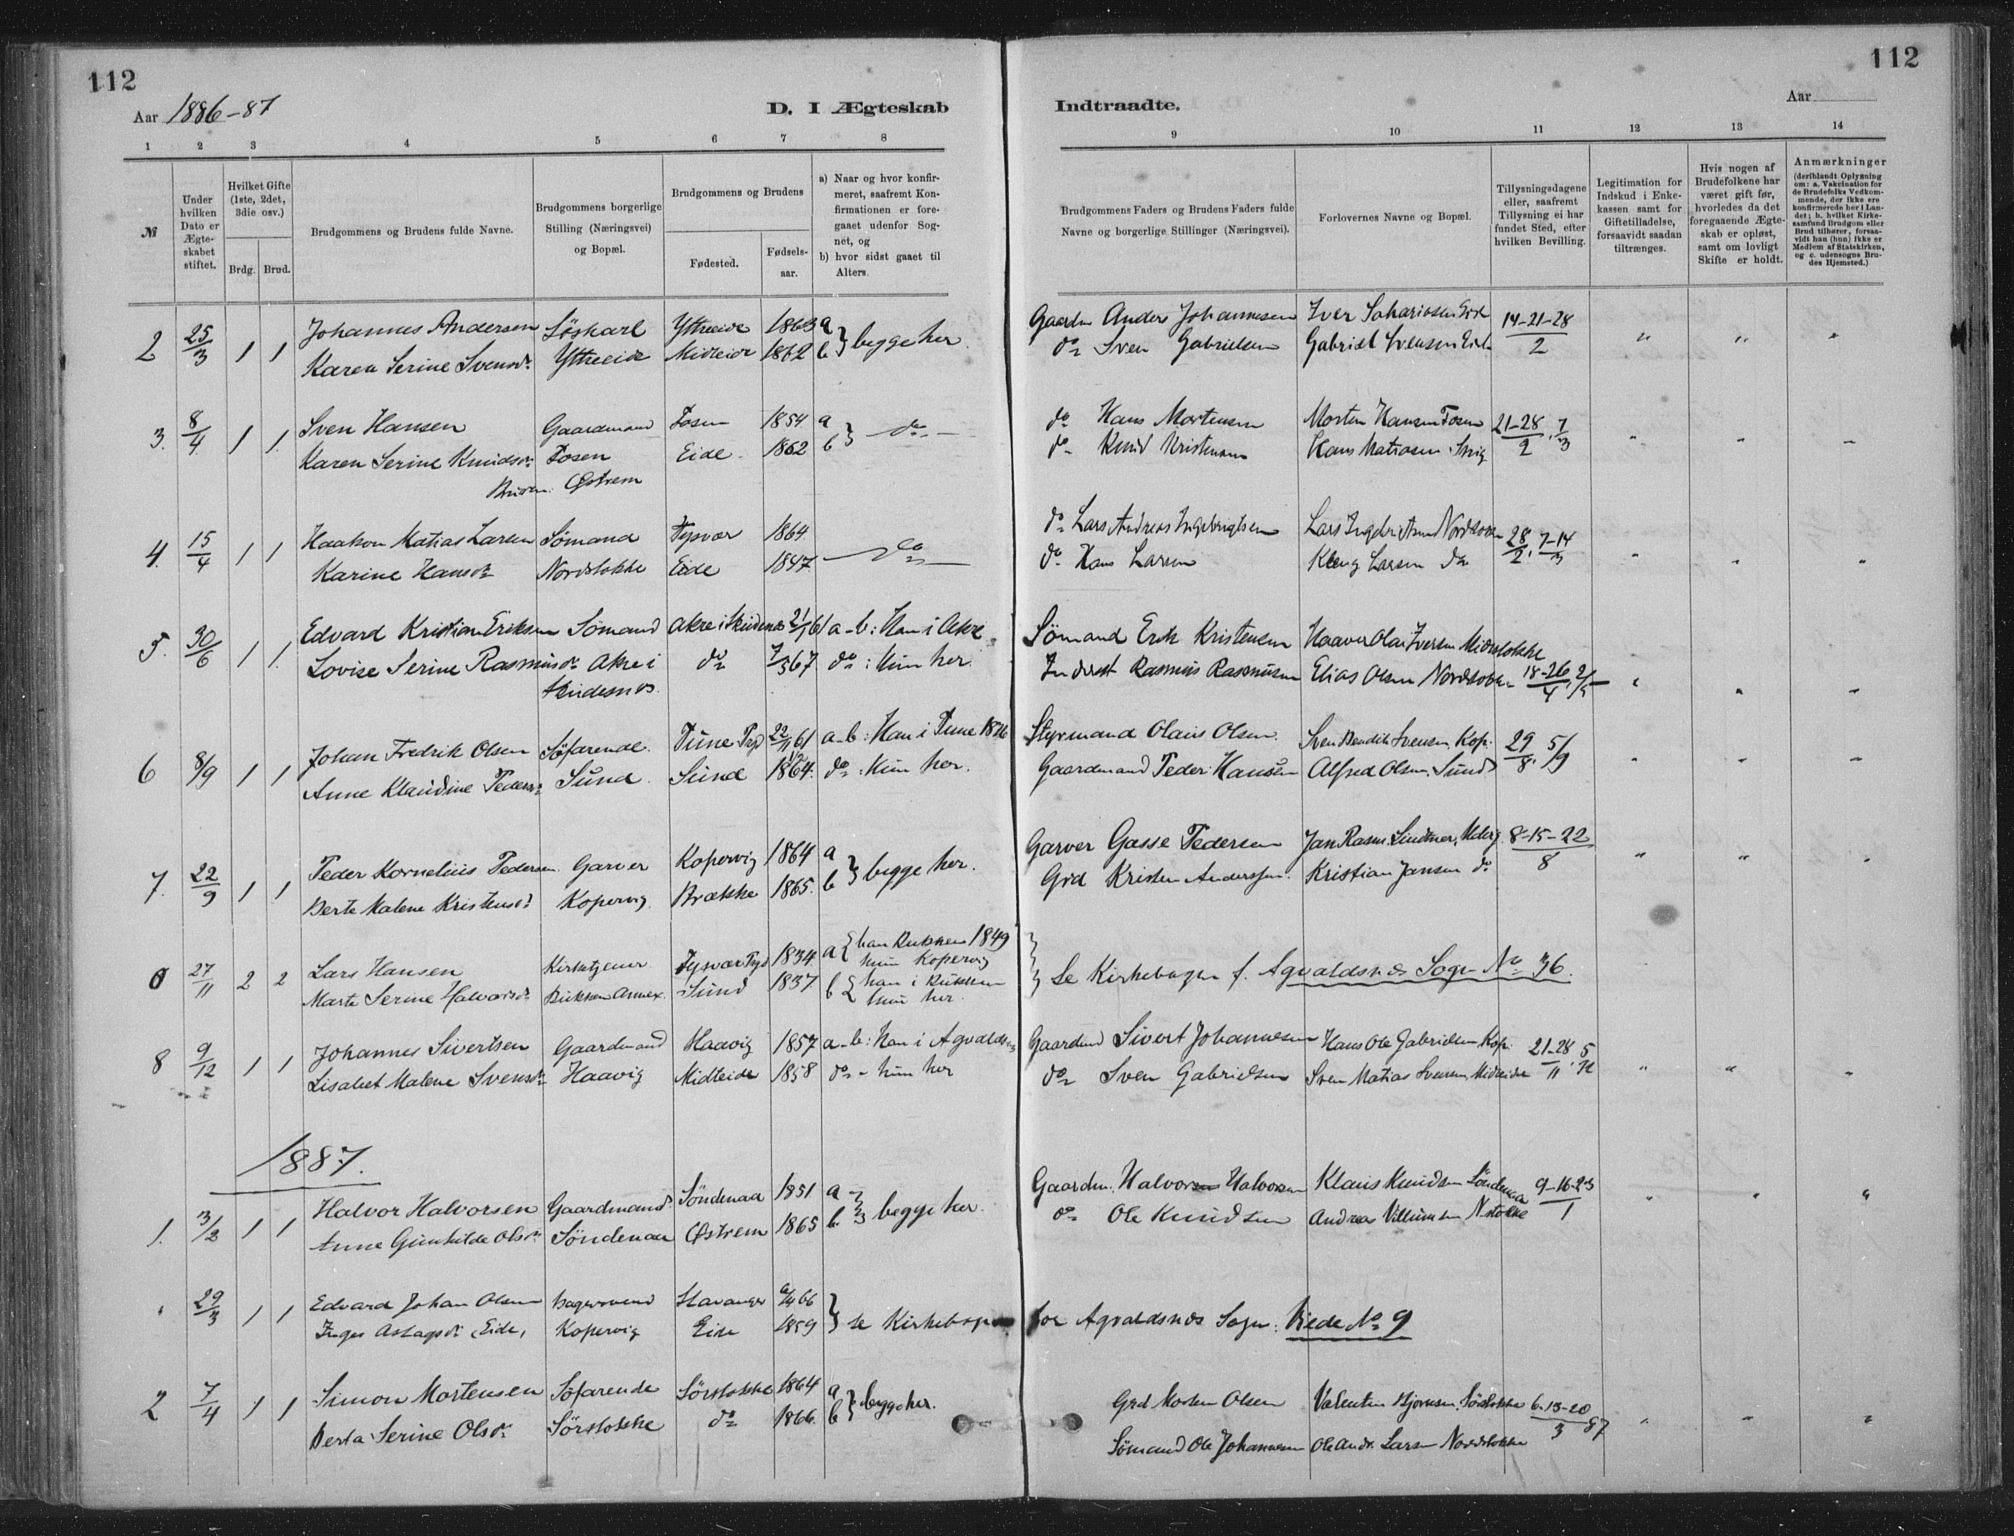 112
112
Aar 1886-87
D. I Ægteskab
Indtraadte.
Aar
1 2 3 4 5 6 7 8 9 10 11 12 13 14
№
Under hvilken Dato er Ægteskabet stiftet.
Hvilket Gifte (1ste, 2det, 3die osv.)
Brdg. Brud.
Brudgommens og Brudens fulde Navne.
Brudgommens borgerlige Stilling (Næringsvei) og Bopæl.
Brudgommens og Brudens
Fødested.
Fødselsaar.
a) Naar og hvor konfirmeret, saafremt Konfirmationen er foregaaet udenfor Sognet, og
b) hvor sidst gaaet til Alters.
Brudgommens Faders og Brudens Faders fulde Navne og borgerlige Stillinger (Næringsvei).
Forlovernes Navne og Bopæl.
Tillysningsdagene eller, saafremt Tillysning ei har fundet Sted, efter hvilken Bevilling.
Legitimation for Indskud i Enkekassen samt for Giftetilladelse, forsaavidt saadan tiltrænges.
Hvis nogen af Brudefolkene har været gift før, hvorledes da det foregaaende Ægteskab er opløst, samt om lovligt Skifte er holdt.
Anmærkninger (deriblandt Oplysning om: a. Vakcination for de Brudefolks Vedkommende, der ikke ere konfirmerede her i Landet; b. hvilket Kirkesamfund Brudgom eller Brud tilhører, forsaavidt han (hun) ikke er Medlem af Statskirken, og c. udensogns Brudes Hjemsted.)
2 25/3 1 1 Johannes Andersen Søskarl Yttreeide 1863 a } begge her. Gaardm Anders Johannesen Iver Sakariasen Eide 14-21-28/2 " " "
Karen Serine Svensdr. Yttreeide Midteide 1862 b do Sven Gabrielsen Gabriel Svensen Eide
3. 8/4 1 1. Sven Hansen Gaardmand Fosen 1854 a } do do Hans Mortensen Morten Hansen Fosen 21-28/2, 7/3 " " "
Karen Serine Knudsdr. Fosen Eide 1862 b do Knud Kristensen Hans Matiasen
Bruden Østrem
4. 15/4 1 1 Haakon Matias Larsen Sømand Tysvær 1864 do do Lars Andreas Ingebrigtsen 28/2, 7-14/3 " " "
Karine Hansdr Nordstokke Eide 1847 do Hans Larsen Larsen do
5. 30/6 1 1. Edvard Kristian Eriksen Sømand Akre i Skudenes 21/1 61 a-b: Han i Akre Sømand Erik Kristensen Haaver Olai Iversen Midtstokke
Lovise Serine Rasmusdr. Akre i do 7/3 67 do : Hun her. Inderst Rasmus Rasmusen Elias Olsen Nordstokke 18-26/4, 2/5 " " "
Skudesnes
6 8/9 1 1 Johan Fredrik Olsen Søfarende Tune Pgd 22/11 61 a-b: Han i Tune Styrmand Olaus Olsen Sven Bendik Svensen, Kop. 29/8, 5/9 " " "
Anne Klaudine Pedersdr. Sund Sund 1864. do : Hun her. Gaardmand Peder Hansen Alfred Olsen, Sund
7. 22/9 1 1 Peder Kornelius Pedersen Garver Kopervig 1864 a } begge her. Garver Gasse Pedersen Jan Rasm. 8-15-22/8 " " "
Berte Malene Kristensdr Kopervig. Brække 1865. b Grd Kristen Anderssen. Kristian Jansen do
0 27/11 2 2 Lars Hansen Kirketjener Tysvær Pgd 1834 a { han Bukken 1849 hun Kopervig } Se Kirkebogen f. Agvaldsnes Sogn No 36.
Marte Serine Halvorsdr. Bukken Annex. Sund 1837 b { han i Bukken hun her.
8 9/12 1 1 Johannes Sivertsen Gaardmand Haavig 1857 a-b: Han i Agvaldsnes Gaardmd Sivert Johannesen Hans Ole Gabrielsen Kop. 21-28/11, 5/12 " " "
Lisabet Malene Svensdr Haavig Midteide 1858 do - hun her do Sven Gabrielsen Sven Matias Svensen, Midteide
1887.
1. 3/2 1 1 Halvor Halvorsen Gaardmand Søndenaa 1851 a } begge her. Gaardm. Halvor Halvorsen Klaus Knudsen Søndenaa 9-16-23/1 " " "
Anne Gunhilde Olsdr. Søndenaa Østrem 1865 b do Ole Knudsen Andreas Villumsen N. stokke
" 29/3 1 1 Edvard Johan Olsen Bagersvend Stavanger 66 } se Kirkebogen for Agvaldsnes Sogn: Viede No 9
Inger Aslagsdr, Eide, Kopervig Eide 1859
2 7/4 1 1 Simon Mortensen Søfarende Sørstokke 1864 a } begge her. Grd Morten Olsen Valentin Bjørnsen, Sørstokke 6-13-20/3 87 " " "
Berta Serine Olsdr. Sørstokke do 1866. b Sømand Ole Johannesen Ole Andr. Larsen Nordstokke